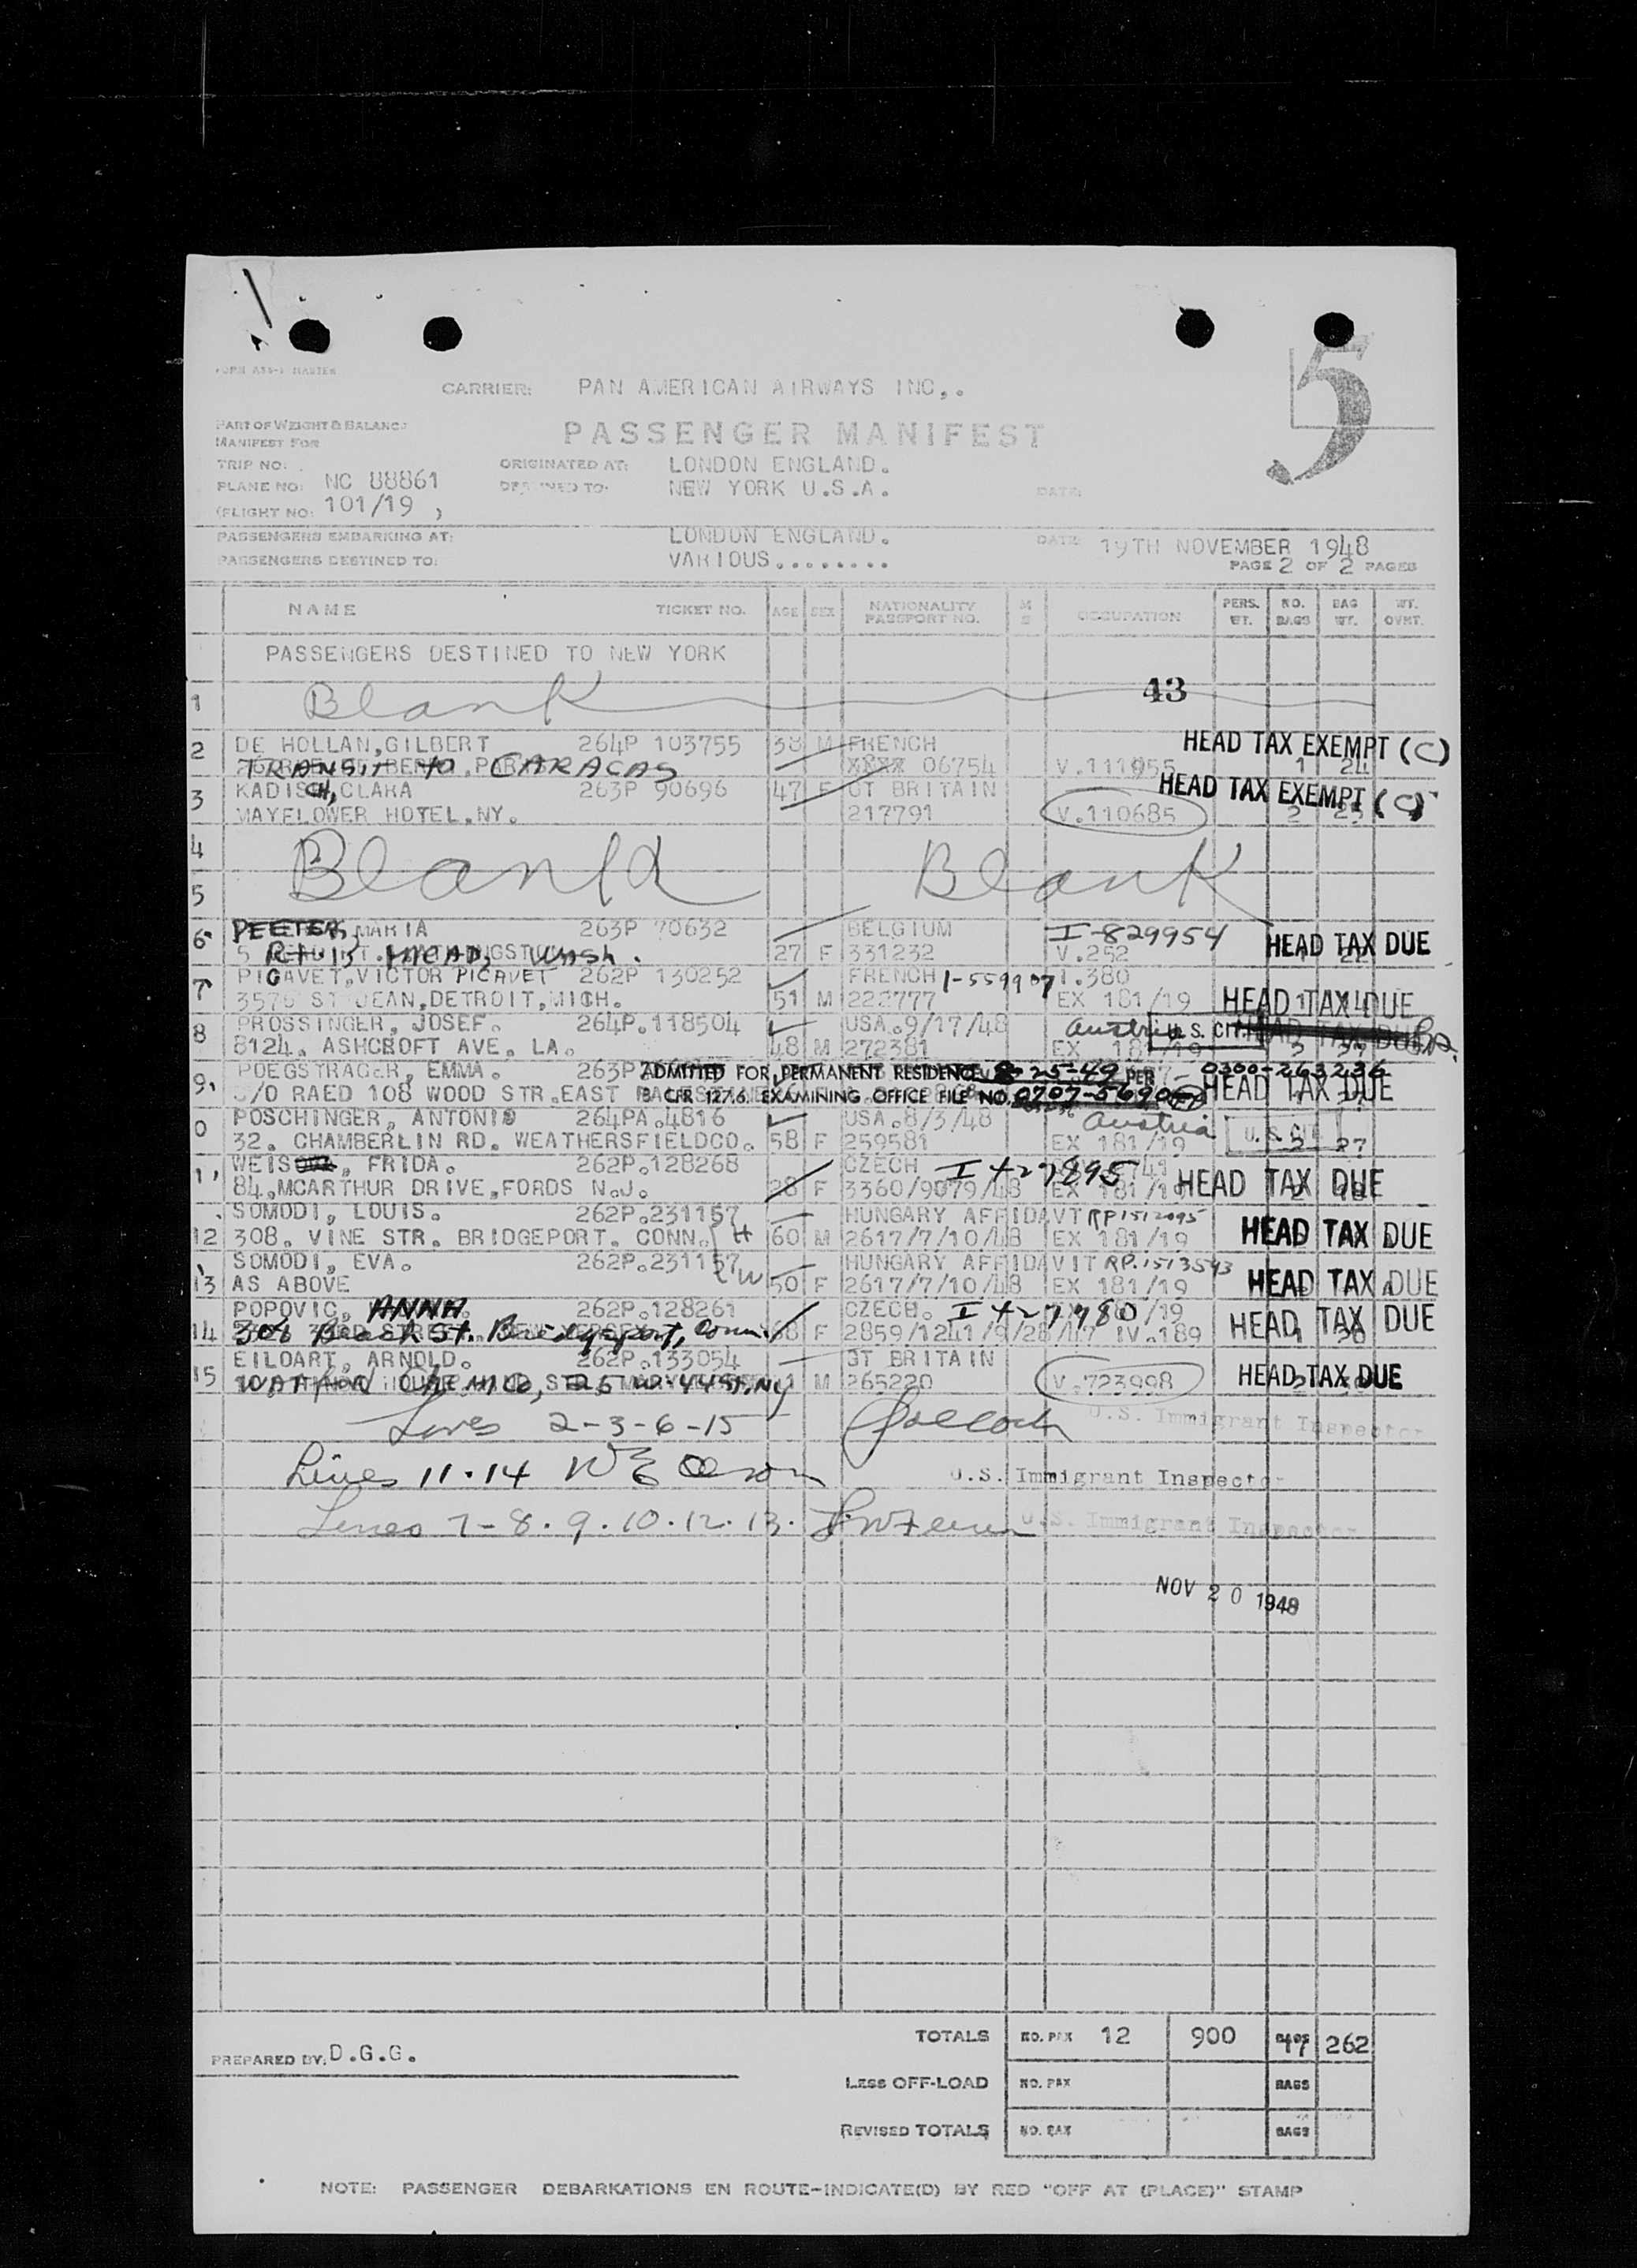 5
FORM ASS-1 MASTER
CARRIER: PAN AMERICAN AIRWAYS INC,.
PART OF WEIGHT & BALANCE
MANIFEST FOR
PASSENGER MANIFEST
TRIP NO: ORIGINATED AT: LONDON ENGLAND.
PLANE NO: NC 88861 DESTINED TO: NEW YORK U.S.A. DATE:
(FLIGHT NO: 101/19 )
PASSENGERS EMBARKING AT: LONDON ENGLAND. DATE: 19TH NOVEMBER 1948
PASSENGERS DESTINED TO: VARIOUS........ PAGE 2 OF 2 PAGES
NAME TICKET NO. AGE SEX NATIONALITY PASSPORT NO. M S OCCUPATION PERS. WT. NO. BAGS BAG WT. WT. OVNT.
PASSENGERS DESTINED TO NEW YORK
1 Blank 43
2 DE HOLLAN,GILBERT 264P 103755 38 M FRENCH HEAD TAX EXEMPT (C)
TRANSIT TO CARACAS XXXX 06754 V.111955 1 24
3 KADISCH,CLARA 263P 90696 47 F GT BRITAIN HEAD TAX EXEMPT (C)
MAYFLOWER HOTEL,NY. 217791 V.110685 2 23
4 Blank Blank
5
6 PEETERS,MARIA 263P 70632 BELGIUM I-829954
Wash. 27 F 331232 V.252 HEAD TAX DUE
7 PIGAVET,VICTOR PICAVET 262P 130252 FRENCH 1-559907 1.380
3576 ST JEAN,DETROIT,MICH. 51 M 222777 EX 181/19 HEAD TAX DUE
8 PROSSINGER, JOSEF. 264P.118504 USA.9/17/48 Austria U.S. CIT. HEAD TAX DUE
8124. ASHCROFT AVE. LA. 48 M 272381 EX 181/19
9 POEGSTRAGER, EMMA. 263P ADMITTED FOR PERMANENT RESIDENCE 8-25-49 PER 0300-263236
C/O RAED 108 WOOD STR.EAST 8 CFR 127.6. EXAMINING OFFICE FILE NO. 0707-5690 HEAD TAX DUE
0 POSCHINGER, ANTONIO 264PA.4816 USA.8/3/48 Austria U.S.CIT
32. CHAMBERLIN RD. WEATHERSFIELDCO. 58 F 259581 EX 181/19 2 27
11 WEIS, FRIDA. 262P.128268 CZECH I 427895
84.MCARTHUR DRIVE.FORDS N.J. 28 F 3360/9079/48 EX 181/19 HEAD TAX DUE
SOMODI, LOUIS. 262P.231157 HUNGARY AFFIDAVT RP1512095
12 308. VINE STR. BRIDGEPORT. CONN. H 60 M 2617/7/10/48 EX 181/19 HEAD TAX DUE
SOMODI, EVA. 262P.231157 HUNGARY AFFIDAVIT RP.1513543
13 AS ABOVE W 50 F 2617/7/10/48 EX 181/19 HEAD TAX DUE
POPOVIC, ANNA 262P.128261 CZECH. I 427980 /19
14 306 Beach St. Bridgeport, Conn. 68 F 2859/1241/9/28/47 IV.189 HEAD TAX DUE
EILOART, ARNOLD. 262P.133054 GT BRITAIN
15 25 W. 44 St, NY M 265220 V.723998 HEAD TAX DUE
Lines 2-3-6-15 U.S. Immigrant Inspector
Lines 11.14 W E Olson U.S. Immigrant Inspector
Lines 7-8.9.10.12.13. U.S. Immigrant Inspector
NOV 20 1948
TOTALS NO. PAX 12 900 BAGS 17 262
PREPARED BY: D.G.G.
LESS OFF-LOAD NO. PAX BAGS
REVISED TOTALS NO. PAX BAGS
NOTE: PASSENGER DEBARKATIONS EN ROUTE-INDICATE(D) BY RED "OFF AT (PLACE)" STAMP